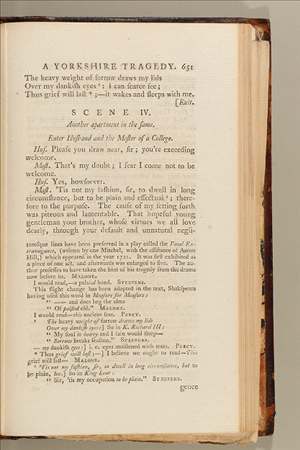 A YORKSHIRE TRAGEDY. 651
The heavy weight of sorrow draws my lids
Over my dankish eyes: I can scarce see;
Thus grief will last;—it wakes and sleeps with me.
[Exit.
SCENE IV.
Another apartment in the same.
Enter Husband and the Master of a College.
Hus. Please you draw near, sir; you're exceeding
welcome.
Mast. That's my doubt; I fear I come not to be
welcome.
Hus. Yes, howsoever.
Mast. 'Tis not my fashion, sir, to dwell in long
circumstance, but to be plain and effectual; there-
fore to the purpose. The cause of my setting forth
was piteous and lamentable. That hopeful young
gentleman your brother, whose virtues we all love
dearly, through your default and unnatural negli-
turesque lines have been preserved in a play called the Fatal Ex-
travagance, (written by one Mitchel, with the assistance of Aaron
Hill,) which appeared in the year 1721. It was first exhibited as
a piece of one act, and afterwards was enlarged to five. The au-
thor professes to have taken the hint of his tragedy from the drama
now before us. MALONE.
I would read,—a palsied hand. STEEVENS.
This slight change has been adopted in the text, Shakspeare
having used this word in Measure for Measure:
"—— and does beg the alms
"Of palsied eld." MALONE.
I would read—this ancient seat. PERCY.
The heavy weight of sorrow draws my lids
Over my dankish eyes:] So in K. Richard III:
"My soul is heavy and I fain would sleep—
"Sorrow breaks seasons." STEEVENS.
— my dankish eyes:] i. e. eyes moistened with tears. PERCY.
Thus grief will last;—] I believe we ought to read—This
grief will last— MALONE.
'Tis not my fashion, sir, to dwell in long circumstance, but to
be plain, &c.] So in King Lear:
"Sir, 'tis my occupation to be plain." STEEVENS.
gence